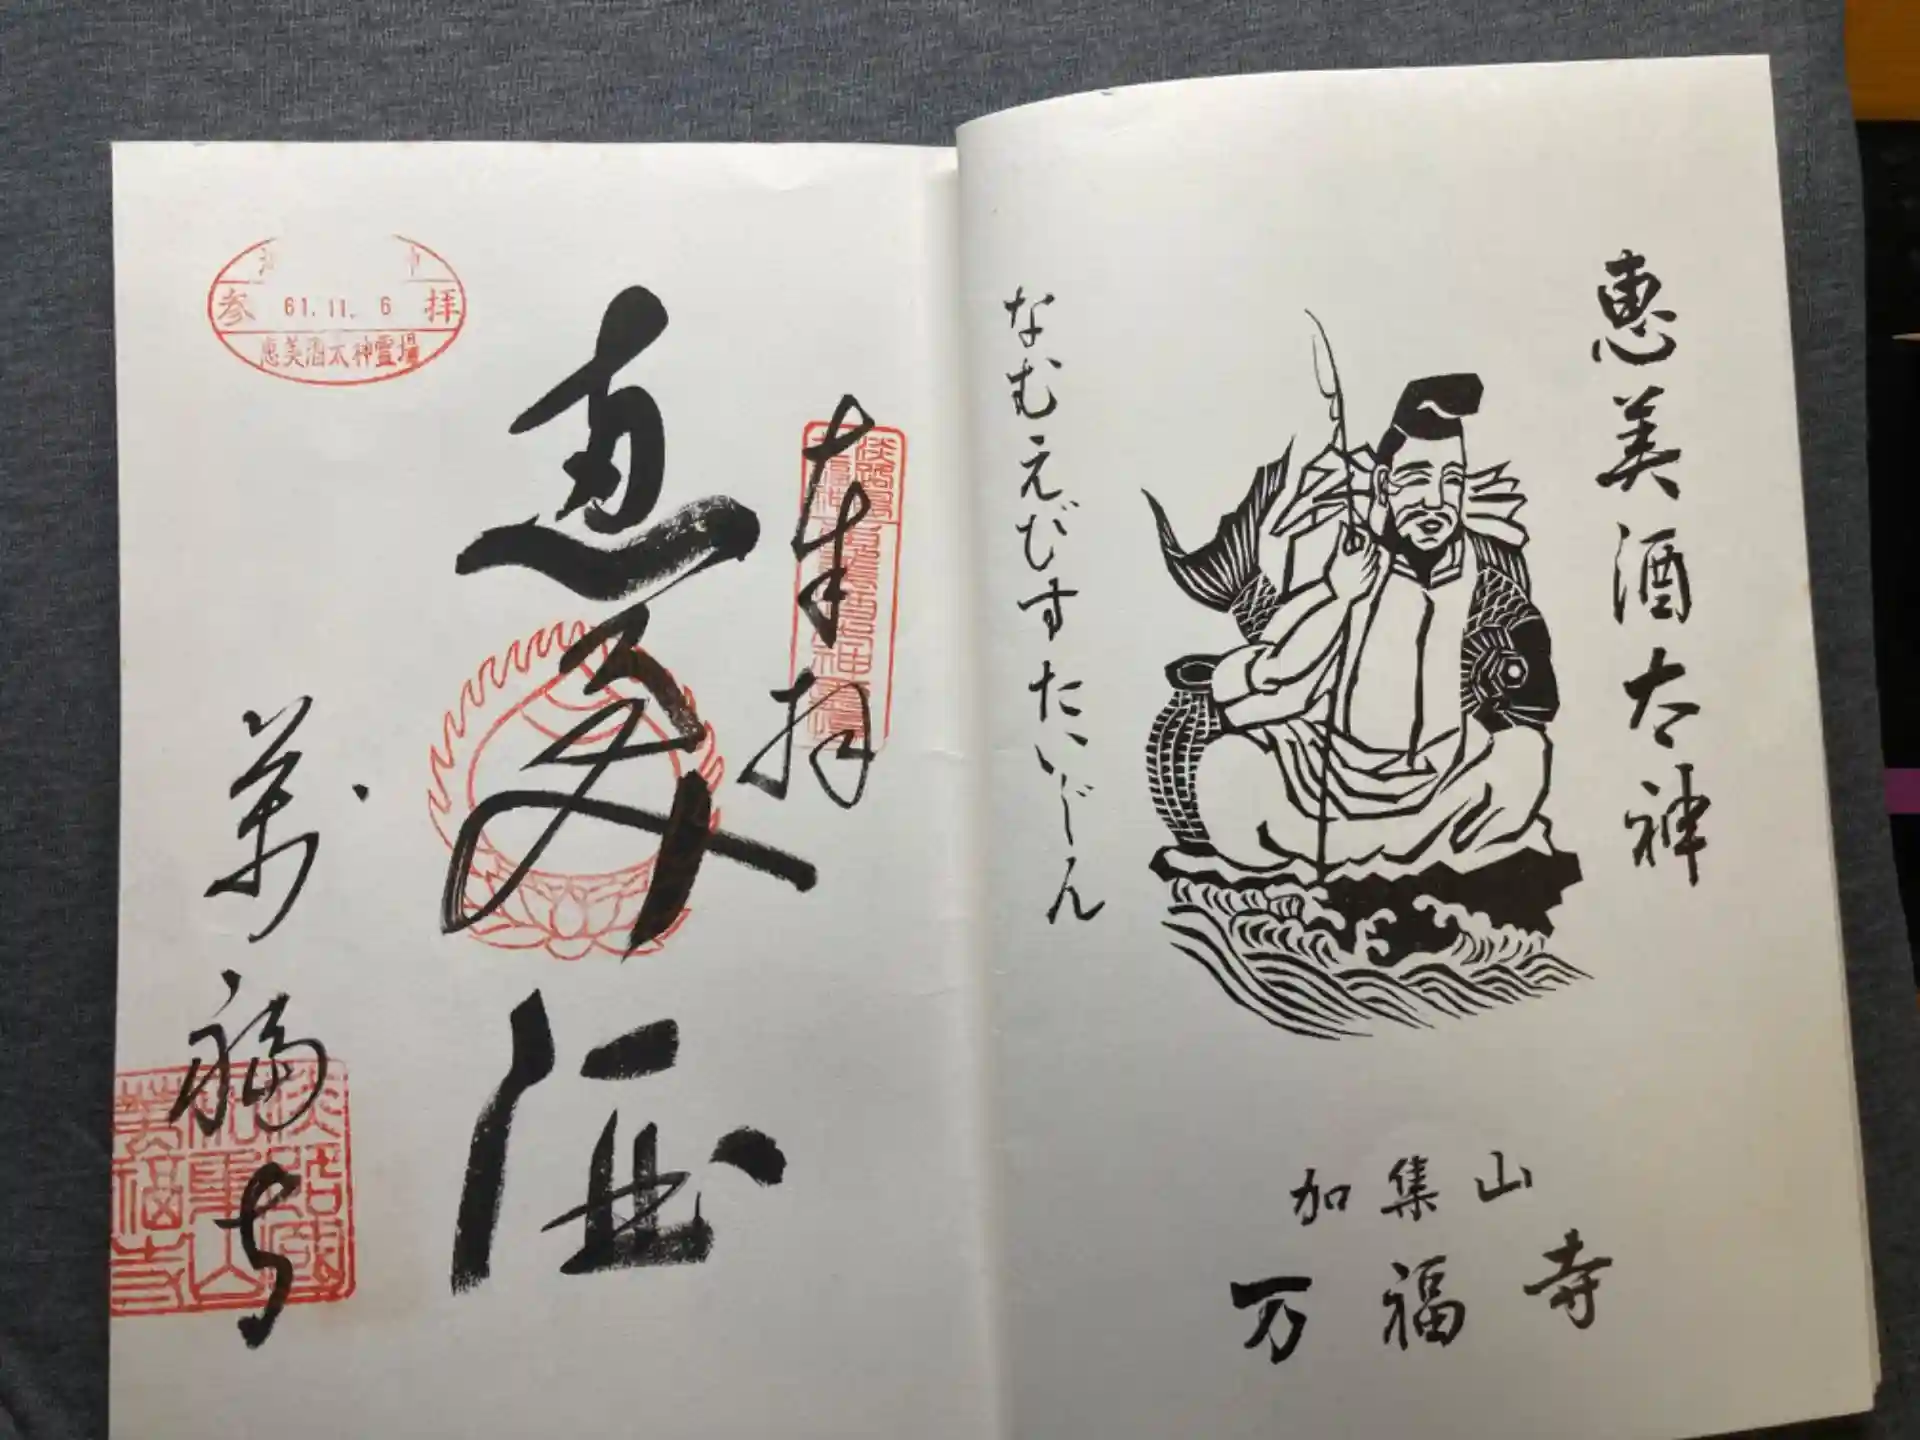 恵美酒太神
なむえびすたいじん
加集山
万福寺
奉拝
恵美酒
萬福寺
参 61.11.6 拝
恵美酒太神霊場
淡路国
加集山
萬福寺